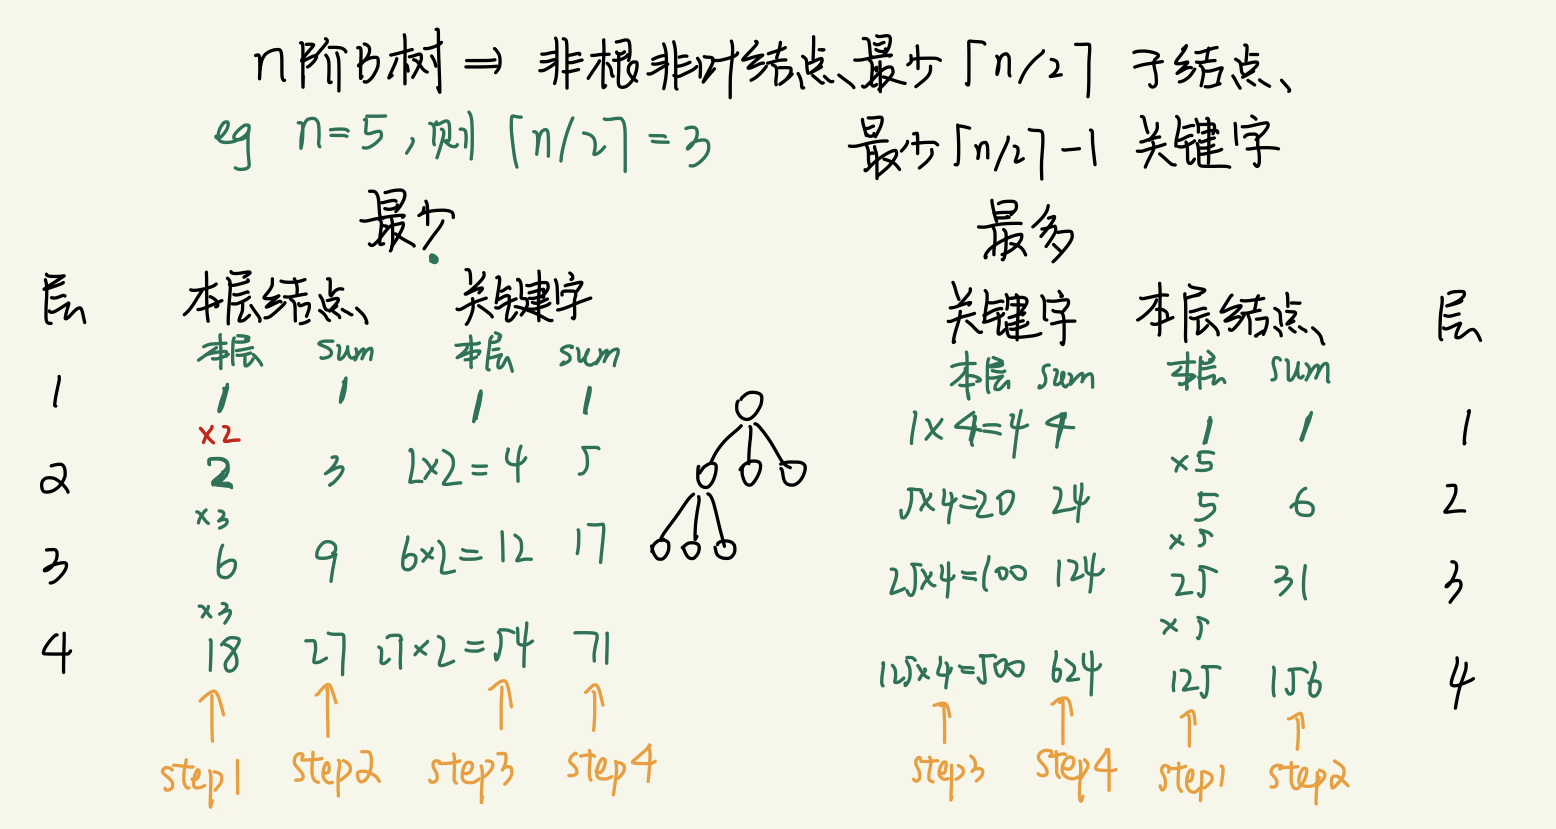 n阶B树 ⇒ 非根非叶结点、最少 ⌈n/2⌉ 子结点、
eg n=5,则 ⌈n/2⌉=3 最少⌈n/2⌉-1 关键字
最少 最多
层 本层结点、 关键字 关键字 本层结点、 层
本层 sum 本层 sum 本层 sum 本层 sum
1 1 1 1 1 1×4=4 4 1 1 1
×2 ×5
2 2 3 2×2=4 5 5×4=20 24 5 6 2
×3 ×5
3 6 9 6×2=12 17 25×4=100 124 25 31 3
×3 ×5
4 18 27 27×2=54 71 125×4=500 624 125 156 4
↑ ↑ ↑ ↑ ↑ ↑ ↑ ↑
step1 step2 step3 step4 step3 step4 step1 step2